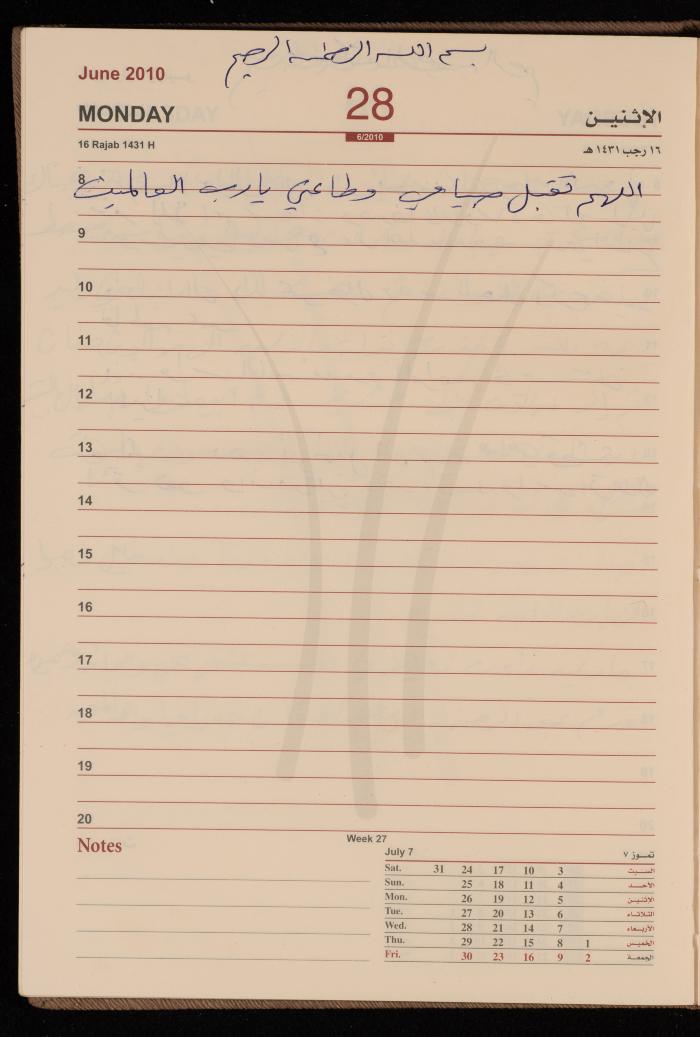 بسم الله الرحمن الرحيم
June 2010
MONDAY 28 الإثنين
6/2010
16 Rajab 1431 H ١٦ رجب ١٤٣١ هـ
8 اللهم تقبل صيامي وطاعتي يارب العالمين
9
10
11
12
13
14
15
16
17
18
19
20
Notes
Week 27
July 7 تموز ٧
Sat. 31 24 17 10 3 السبت
Sun. 25 18 11 4 الأحد
Mon. 26 19 12 5 الإثنين
Tue. 27 20 13 6 الثلاثاء
Wed. 28 21 14 7 الأربعاء
Thu. 29 22 15 8 1 الخميس
Fri. 30 23 16 9 2 الجمعة